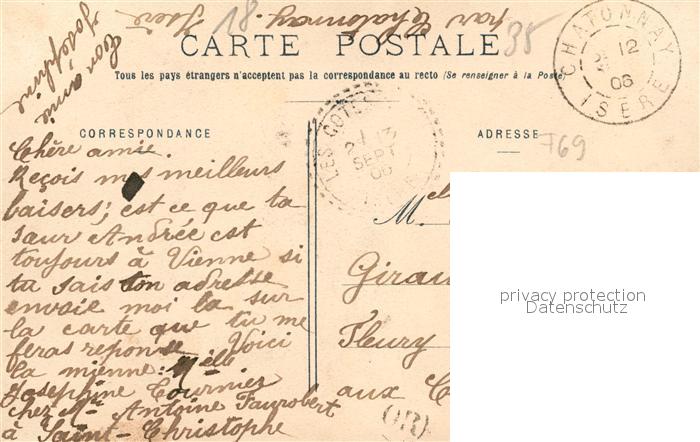 par Chatonnay. Isère
18
35
Ton amie
Joséphine
CARTE POSTALE
Tous les pays étrangers n'acceptent pas la correspondance au recto (Se renseigner à la Poste)
CHATONNAY
12
06
ISERE
LES COTES
SEPT
06
CORRESPONDANCE
ADRESSE
769
Chère amie.
Reçois mes meilleurs
baisers; est ce que ta
sœur Andrée est
toujours à Vienne si
tu sais ton adresse
envoie moi la sur
la carte que tu me
feras reponse Voici
la mienne: Melle
Joséphine Tournier
chez Mr Antoine Faurobert
à Saint-Christophe
Melle
Girau
Fleury
aux C
OR
privacy protection
Datenschutz